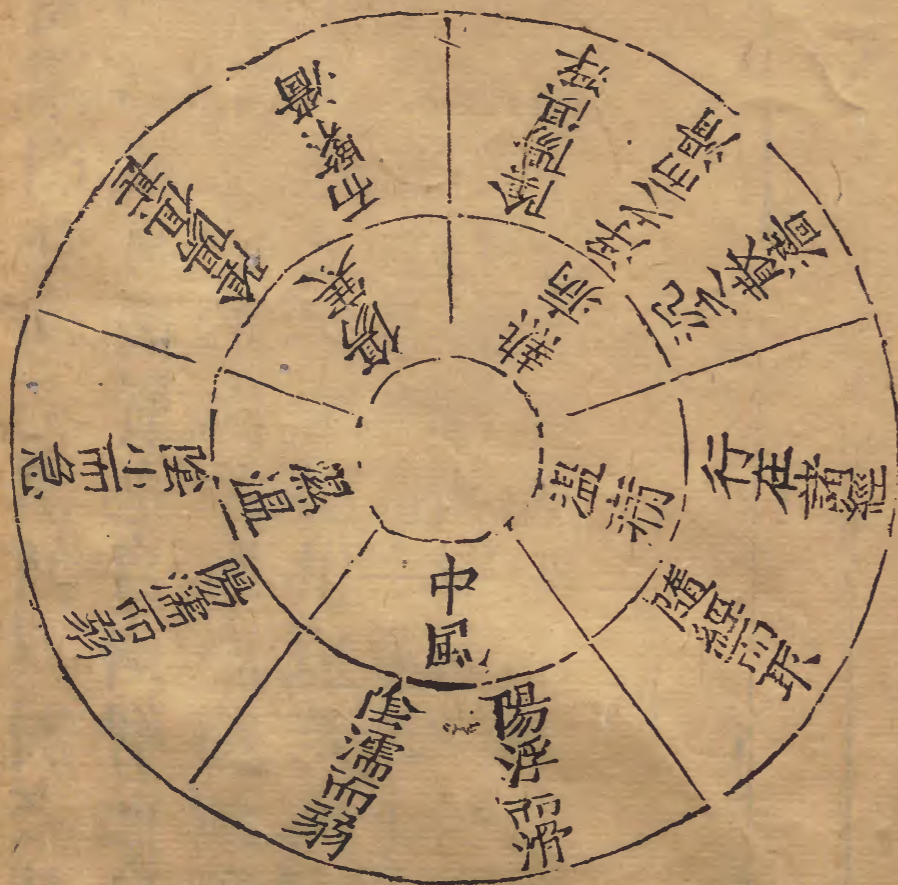 中風
陽浮而滑
陰濡而弱
濕溫
陽濡而弱
陰小而急
傷寒
陰陽俱盛
而緊濇
熱病
陰陽俱浮
浮之而滑
沉之散濇
溫病
行在諸經
隨經所取